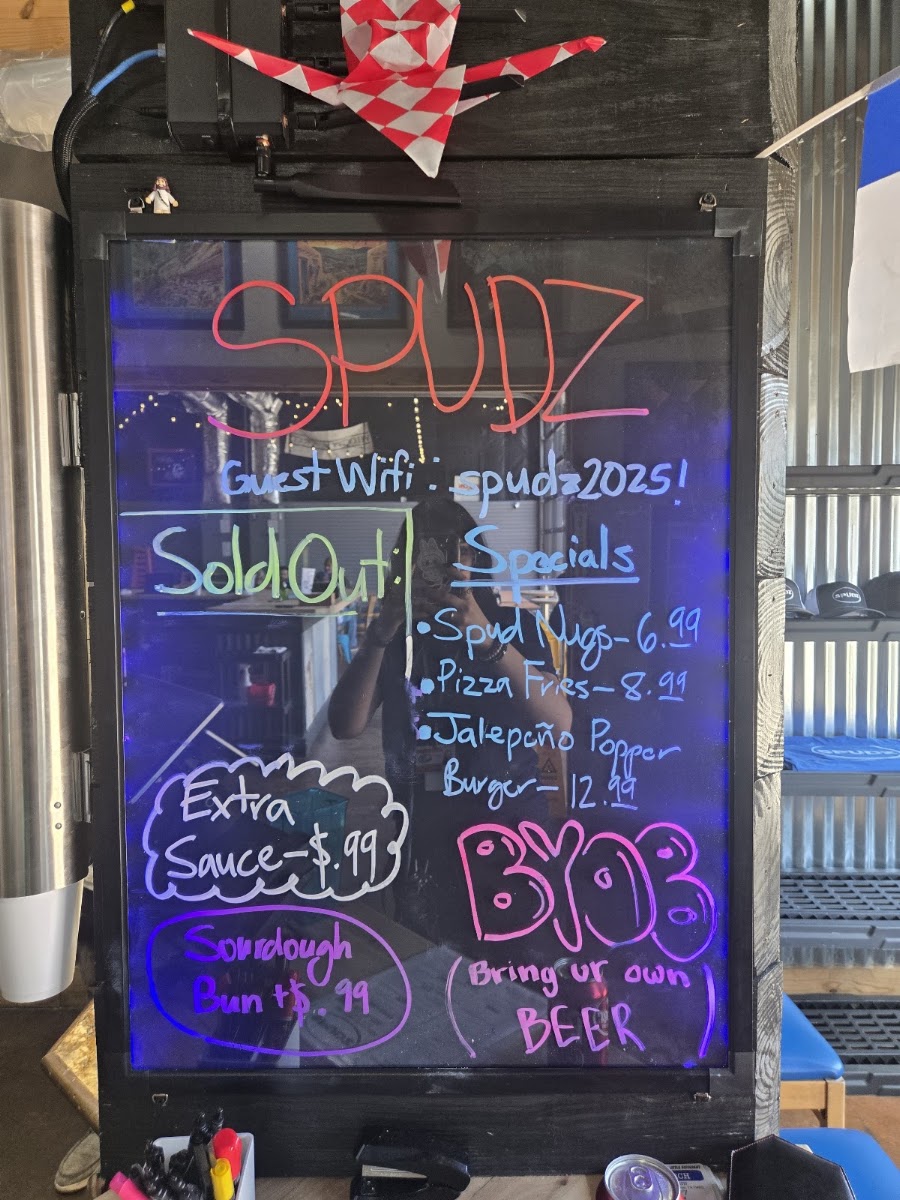 SPUDZ
Guest Wifi : spudz2025!
Sold Out:
Specials
• Spud Nugs - 6.99
• Pizza Fries - 8.99
• Jalepeño Popper
Burger - 12.99
Extra
Sauce - $.99
Sourdough
Bun + $.99
BYOB
(Bring ur own
BEER)
SPUDZ